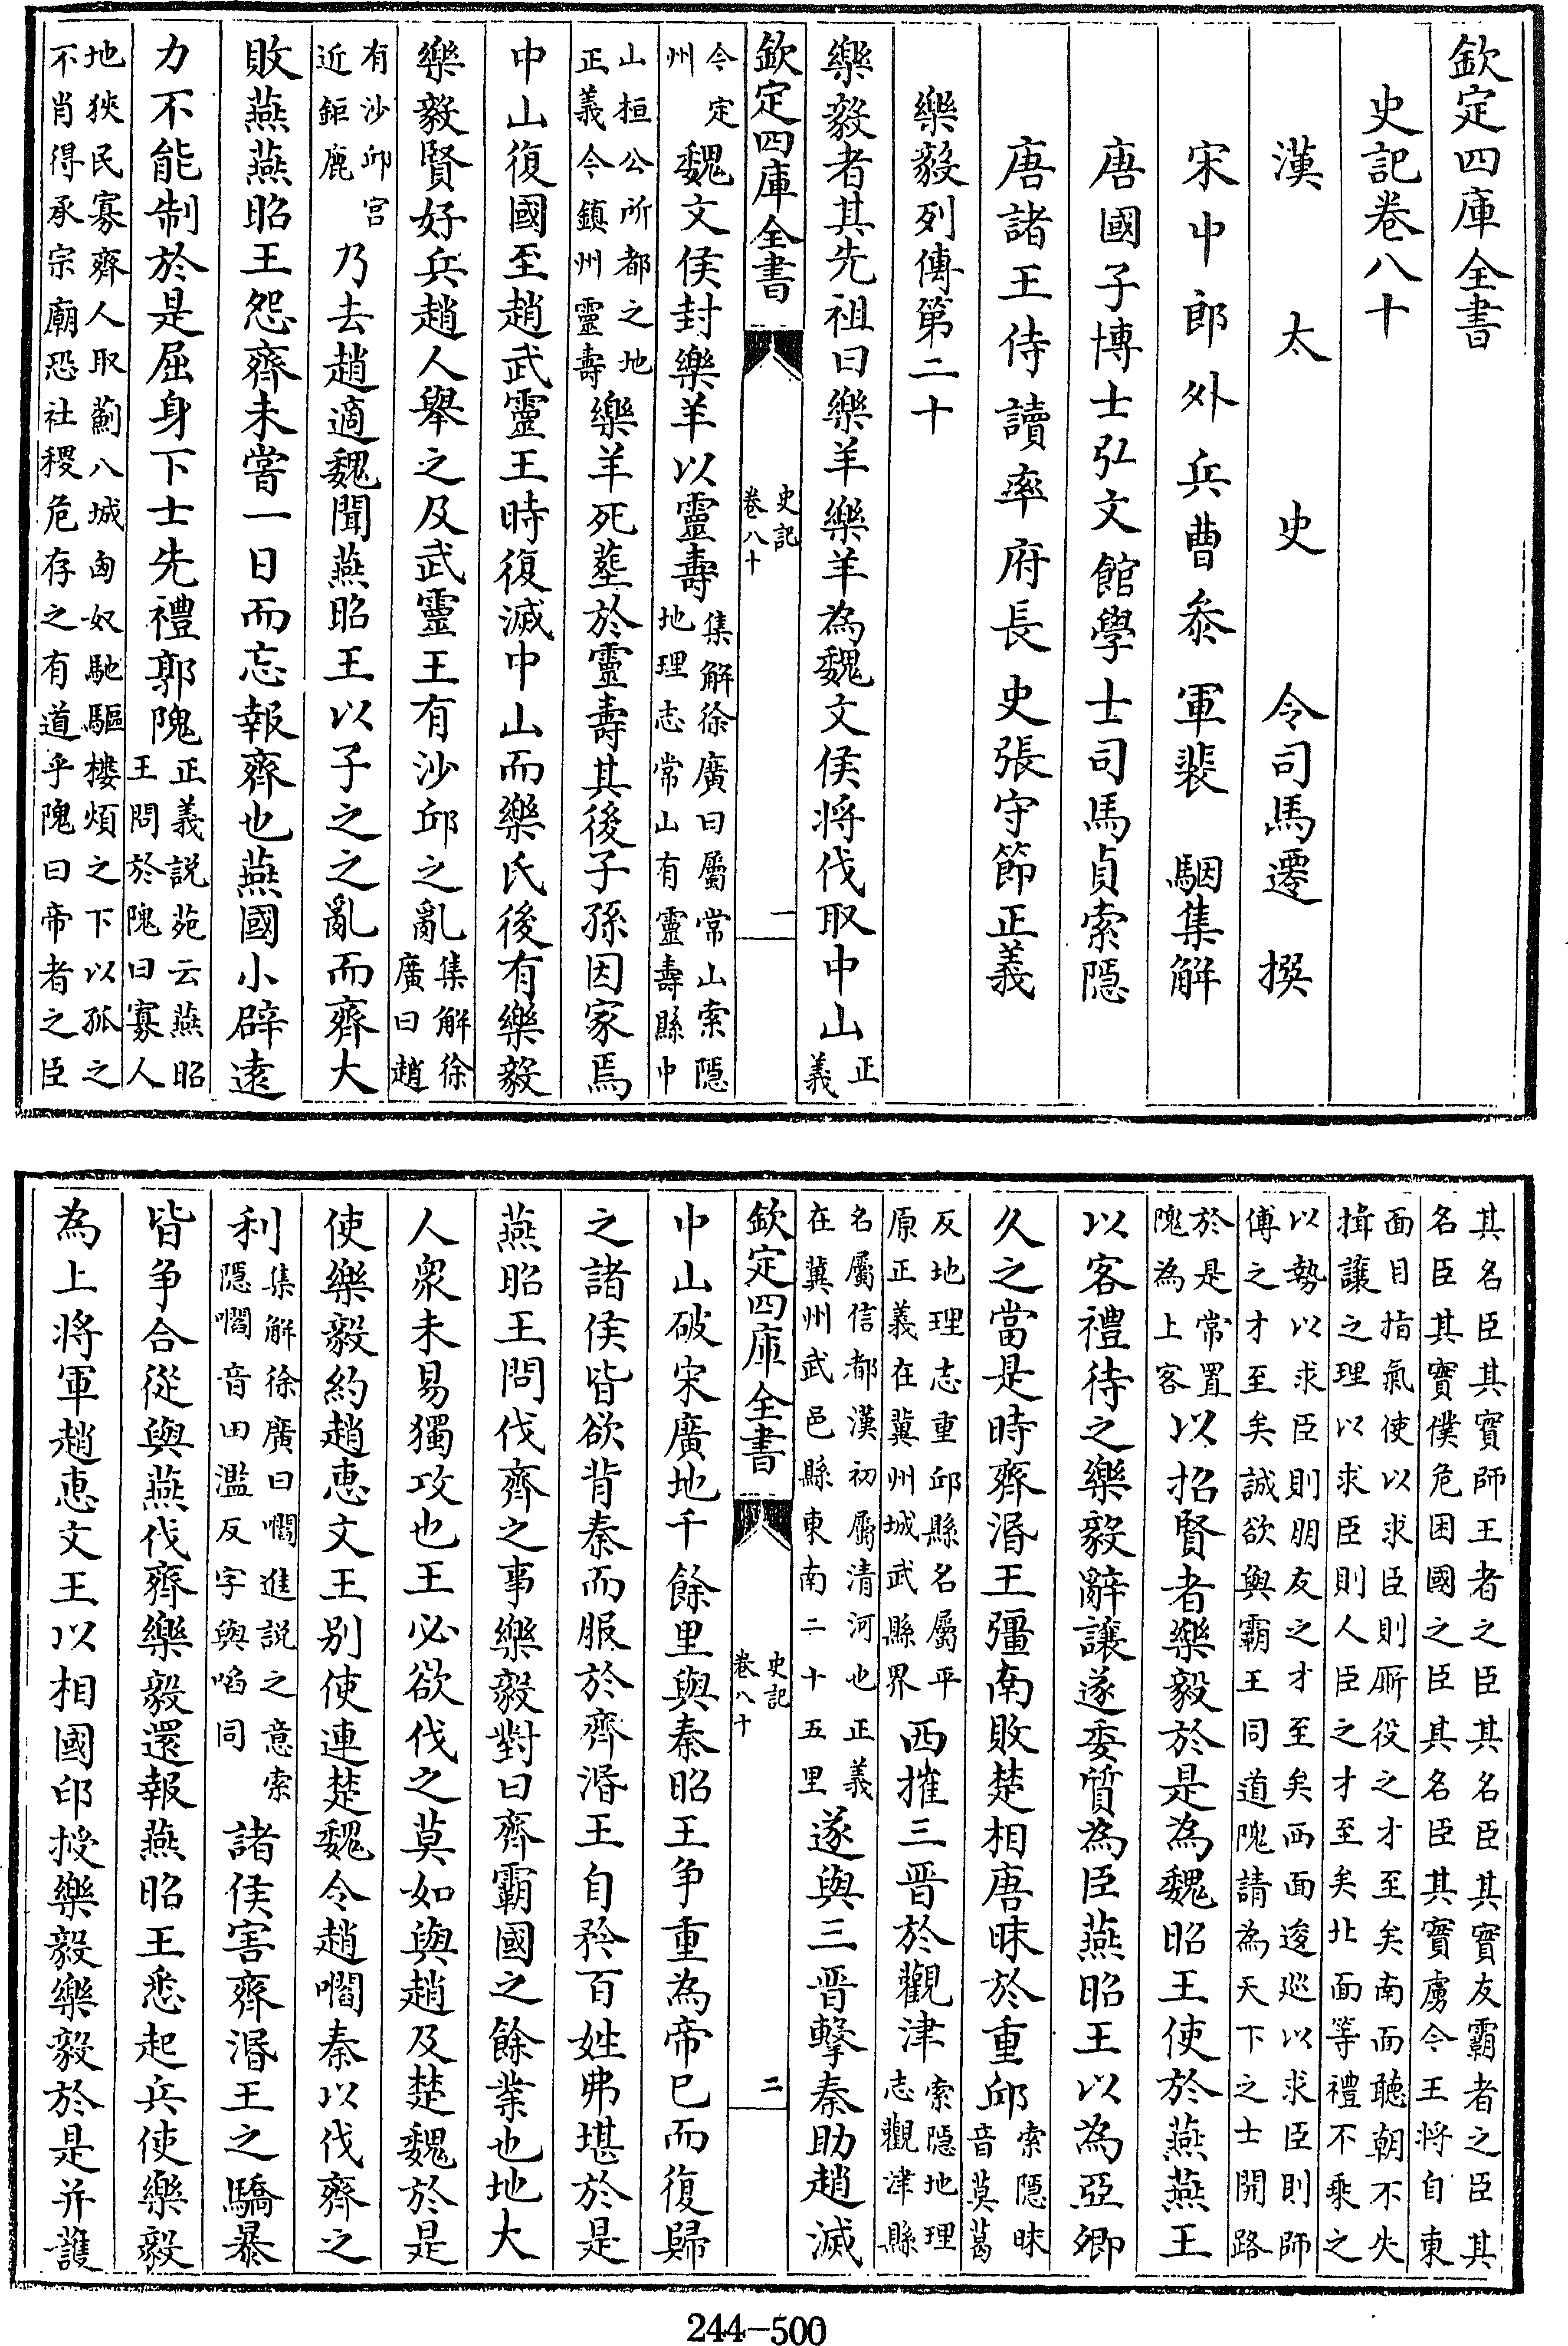 欽定四庫全書
史記卷八十
漢太史令司馬遷撰
宋中郎外兵曹叅軍裴駰集解
唐國子博士弘文館學士司馬貞索隱
唐諸王侍讀率府長史張守節正義
樂毅列傳第二十
樂毅者其先祖曰樂羊樂羊為魏文侯將伐取中山正義
欽定四庫全書 史記卷八十 一
今定州魏文侯封樂羊以靈壽集解徐廣曰屬常山索隱地理志常山有靈壽縣中
山桓公所都之地正義今鎮州靈壽樂羊死塟於靈壽其後子孫因家焉
中山復國至趙武靈王時復滅中山而樂氏後有樂毅
樂毅賢好兵趙人舉之及武靈王有沙邱之亂集解徐廣曰趙
有沙邱宮近鉅鹿乃去趙適魏聞燕昭王以子之之亂而齊大
敗燕燕昭王怨齊未嘗一日而忘報齊也燕國小辟遠
力不能制於是屈身下士先禮郭隗正義説苑云燕昭王問於隗曰寡人
地狹民寡齊人取薊八城匈奴馳驅樓煩之下以孤之不肖得承宗廟恐社稷危存之有道乎隗曰帝者之臣
其名臣其實師王者之臣其名臣其實友霸者之臣其名臣其實僕危困國之臣其名臣其實虜今王將自東
面目指氣使以求臣則厮役之才至矣南面聽朝不失揖讓之理以求臣則人臣之才至矣北面等禮不乘之
以勢以求臣則朋友之才至矣西面逡巡以求臣則師傅之才至矣誠欲與霸王同道隗請為天下之士開路
於是常置隗為上客以招賢者樂毅於是為魏昭王使於燕燕王
以客禮待之樂毅辭讓遂委質為臣燕昭王以為亞卿
久之當是時齊湣王彊南敗楚相唐眜於重邱索隱眜音莫葛
反地理志重邱縣名屬平原正義在冀州城武縣界西摧三晉於觀津索隱地理志觀津縣
名屬信都漢初屬清河也正義在冀州武邑縣東南二十五里遂與三晉擊秦助趙滅
欽定四庫全書 史記卷八十 二
中山破宋廣地千餘里與秦昭王争重為帝已而復歸
之諸侯皆欲背秦而服於齊湣王自矜百姓弗堪於是
燕昭王問伐齊之事樂毅對曰齊霸國之餘業也地大
人衆未易獨攻也王必欲伐之莫如與趙及楚魏於是
使樂毅約趙惠文王别使連楚魏令趙嚪秦以伐齊之
利集解徐廣曰嚪進説之意索隱嚪音田濫反字與啗同諸侯害齊湣王之驕暴
皆争合從與燕伐齊樂毅還報燕昭王悉起兵使樂毅
為上將軍趙惠文王以相國印授樂毅樂毅於是并護
244-500